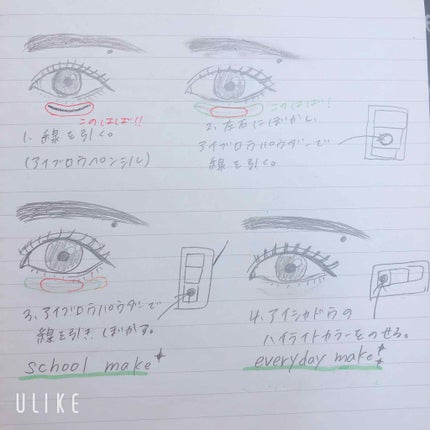 このはば!!
1. 線を引く。
(アイブロウペンシル)
このはば!!
2. 左右にぼかし
アイブロウパウダーで
線を引く。
3. アイブロウパウダーで
線を引き、ぼかす。
school make
4. アイシャドウの
ハイライトカラーをのせる。
everyday make
ULIKE